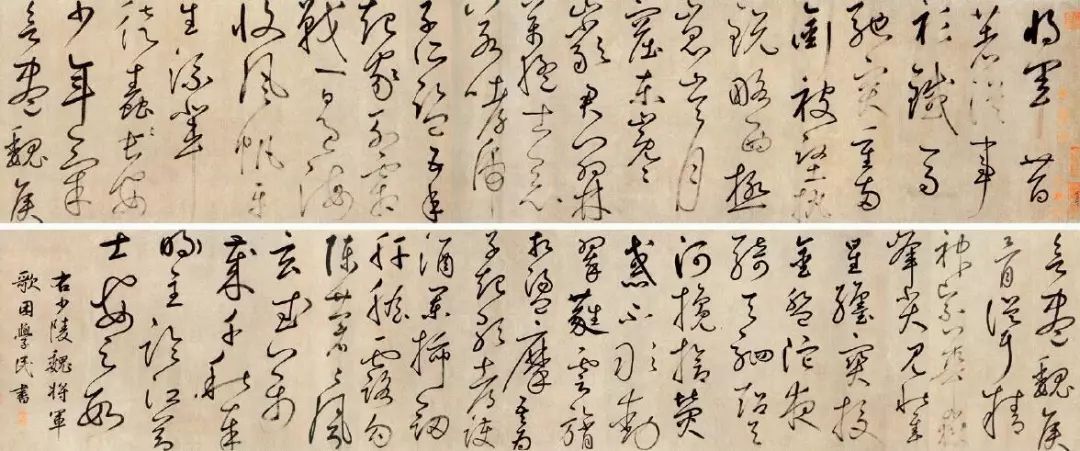 將軍昔
著從事
衫鐵馬
馳突重兩
銜被堅執
銳略西極
崑崙月
窟東嶄
巖君門羽林
萬猛士惡
若哮虎
子所監五年
起家列霜
戟一日過海
收風帆平
生流輩
徒蠢〻長安
少年氣
欲盡魏侯
欲盡魏侯
骨聳精
爽緊華嶽
峯尖見秋隼
星纏寶校
金盤陀夜
騎天駟超天
河攙搶熒
惑不敢動
翠蕤雲旓
相蕩摩吾為
子起歌都護
酒闌插劍
肝膽露勾
陳蒼〻風
玄武萬
歲千秋奉
明主臨江節
士安足數
右少陵魏將軍
歌困學民書